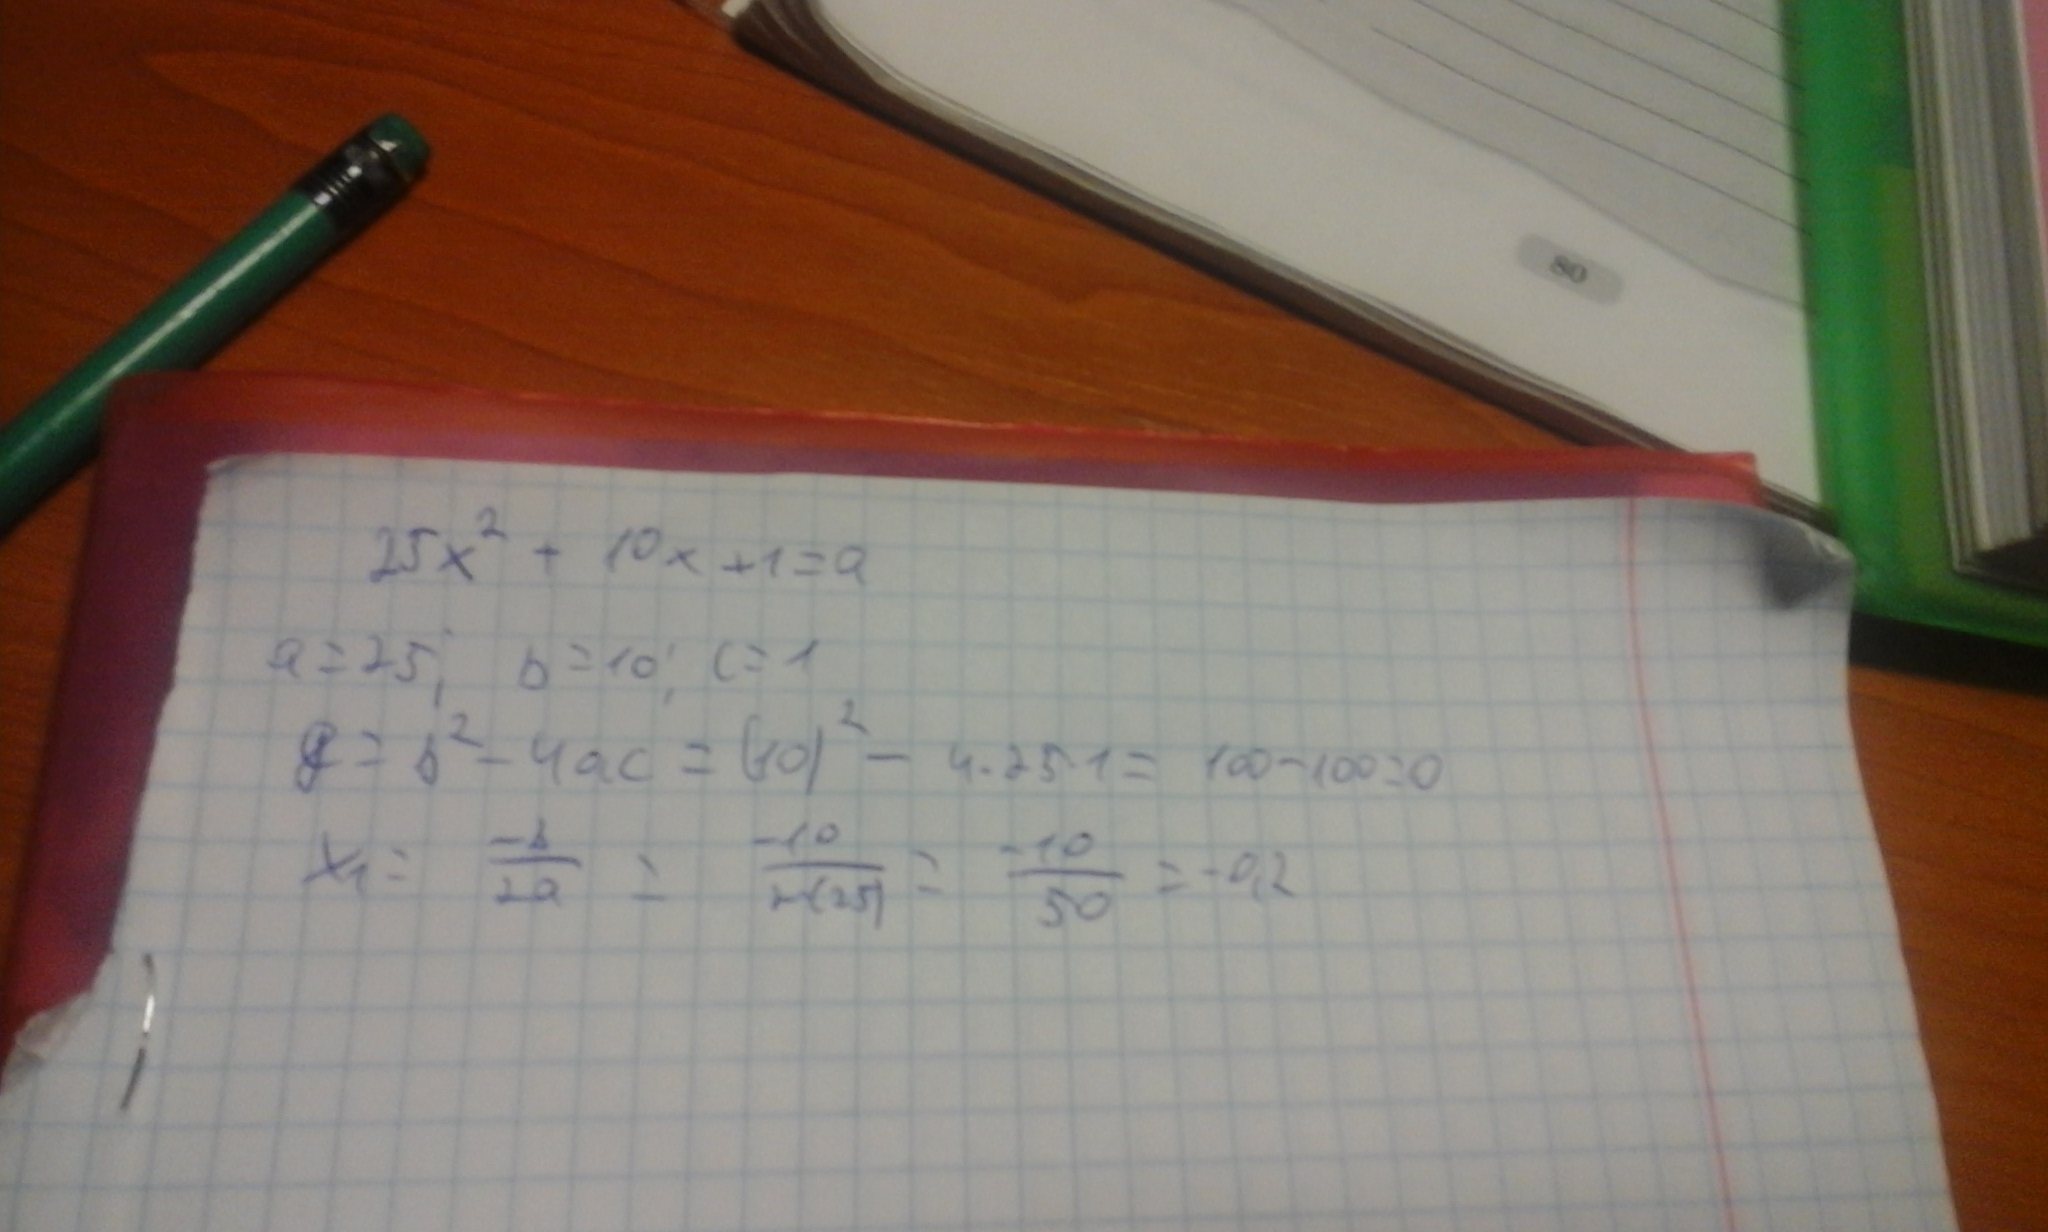 80
25x² + 10x + 1 = 0
a = 25; b = 10; c = 1
D = b² - 4ac = (10)² - 4·25·1 = 100 - 100 = 0
x₁ = -b/2a = -10/2·(25) = -10/50 = -0,2